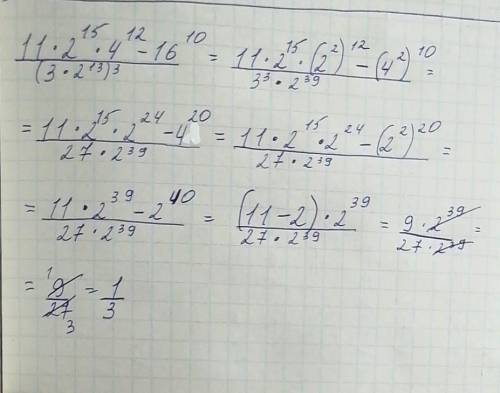 (11·2^15·4^12-16^10)/(3·2^13)^3 = (11·2^15·(2^2)^12-(4^2)^10)/(3^3·2^39) =
= (11·2^15·2^24-4^20)/(27·2^39) = (11·2^15·2^24-(2^2)^20)/(27·2^39) =
= (11·2^39-2^40)/(27·2^39) = ((11-2)·2^39)/(27·2^39) = (9·2^39)/(27·2^39) =
= 9^1/27_3 = 1/3